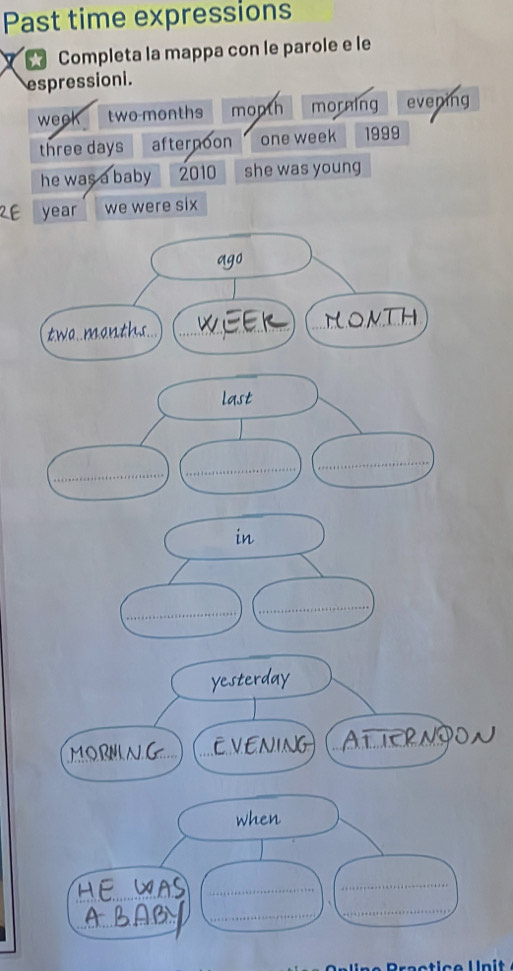 Past time expressions
7 Completa la mappa con le parole e le
espressioni.
week two months month morning evening
three days afternoon one week 1999
he was a baby 2010 she was young
RE year we were six
ago
two months WEEK MONTH
last
in
yesterday
MORNING EVENING AFTERNOON
when
HE WAS
A BABY
Online Practice Unit